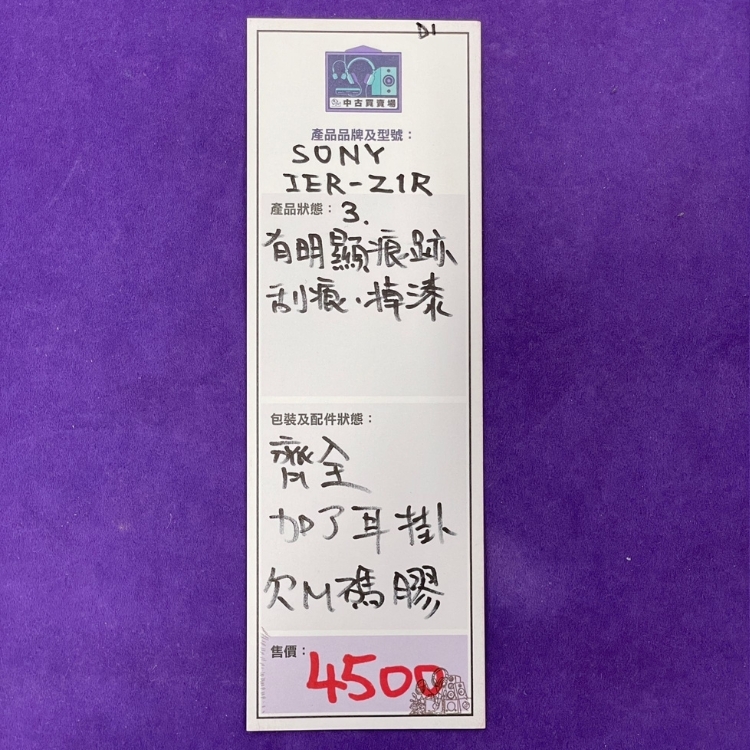 D1
中古買賣場
產品品牌及型號：
SONY
IER-Z1R
產品狀態：3.
有明顯痕跡
刮痕．掉漆
包裝及配件狀態：
齊全
加了耳掛
欠M碼膠
售價：4500